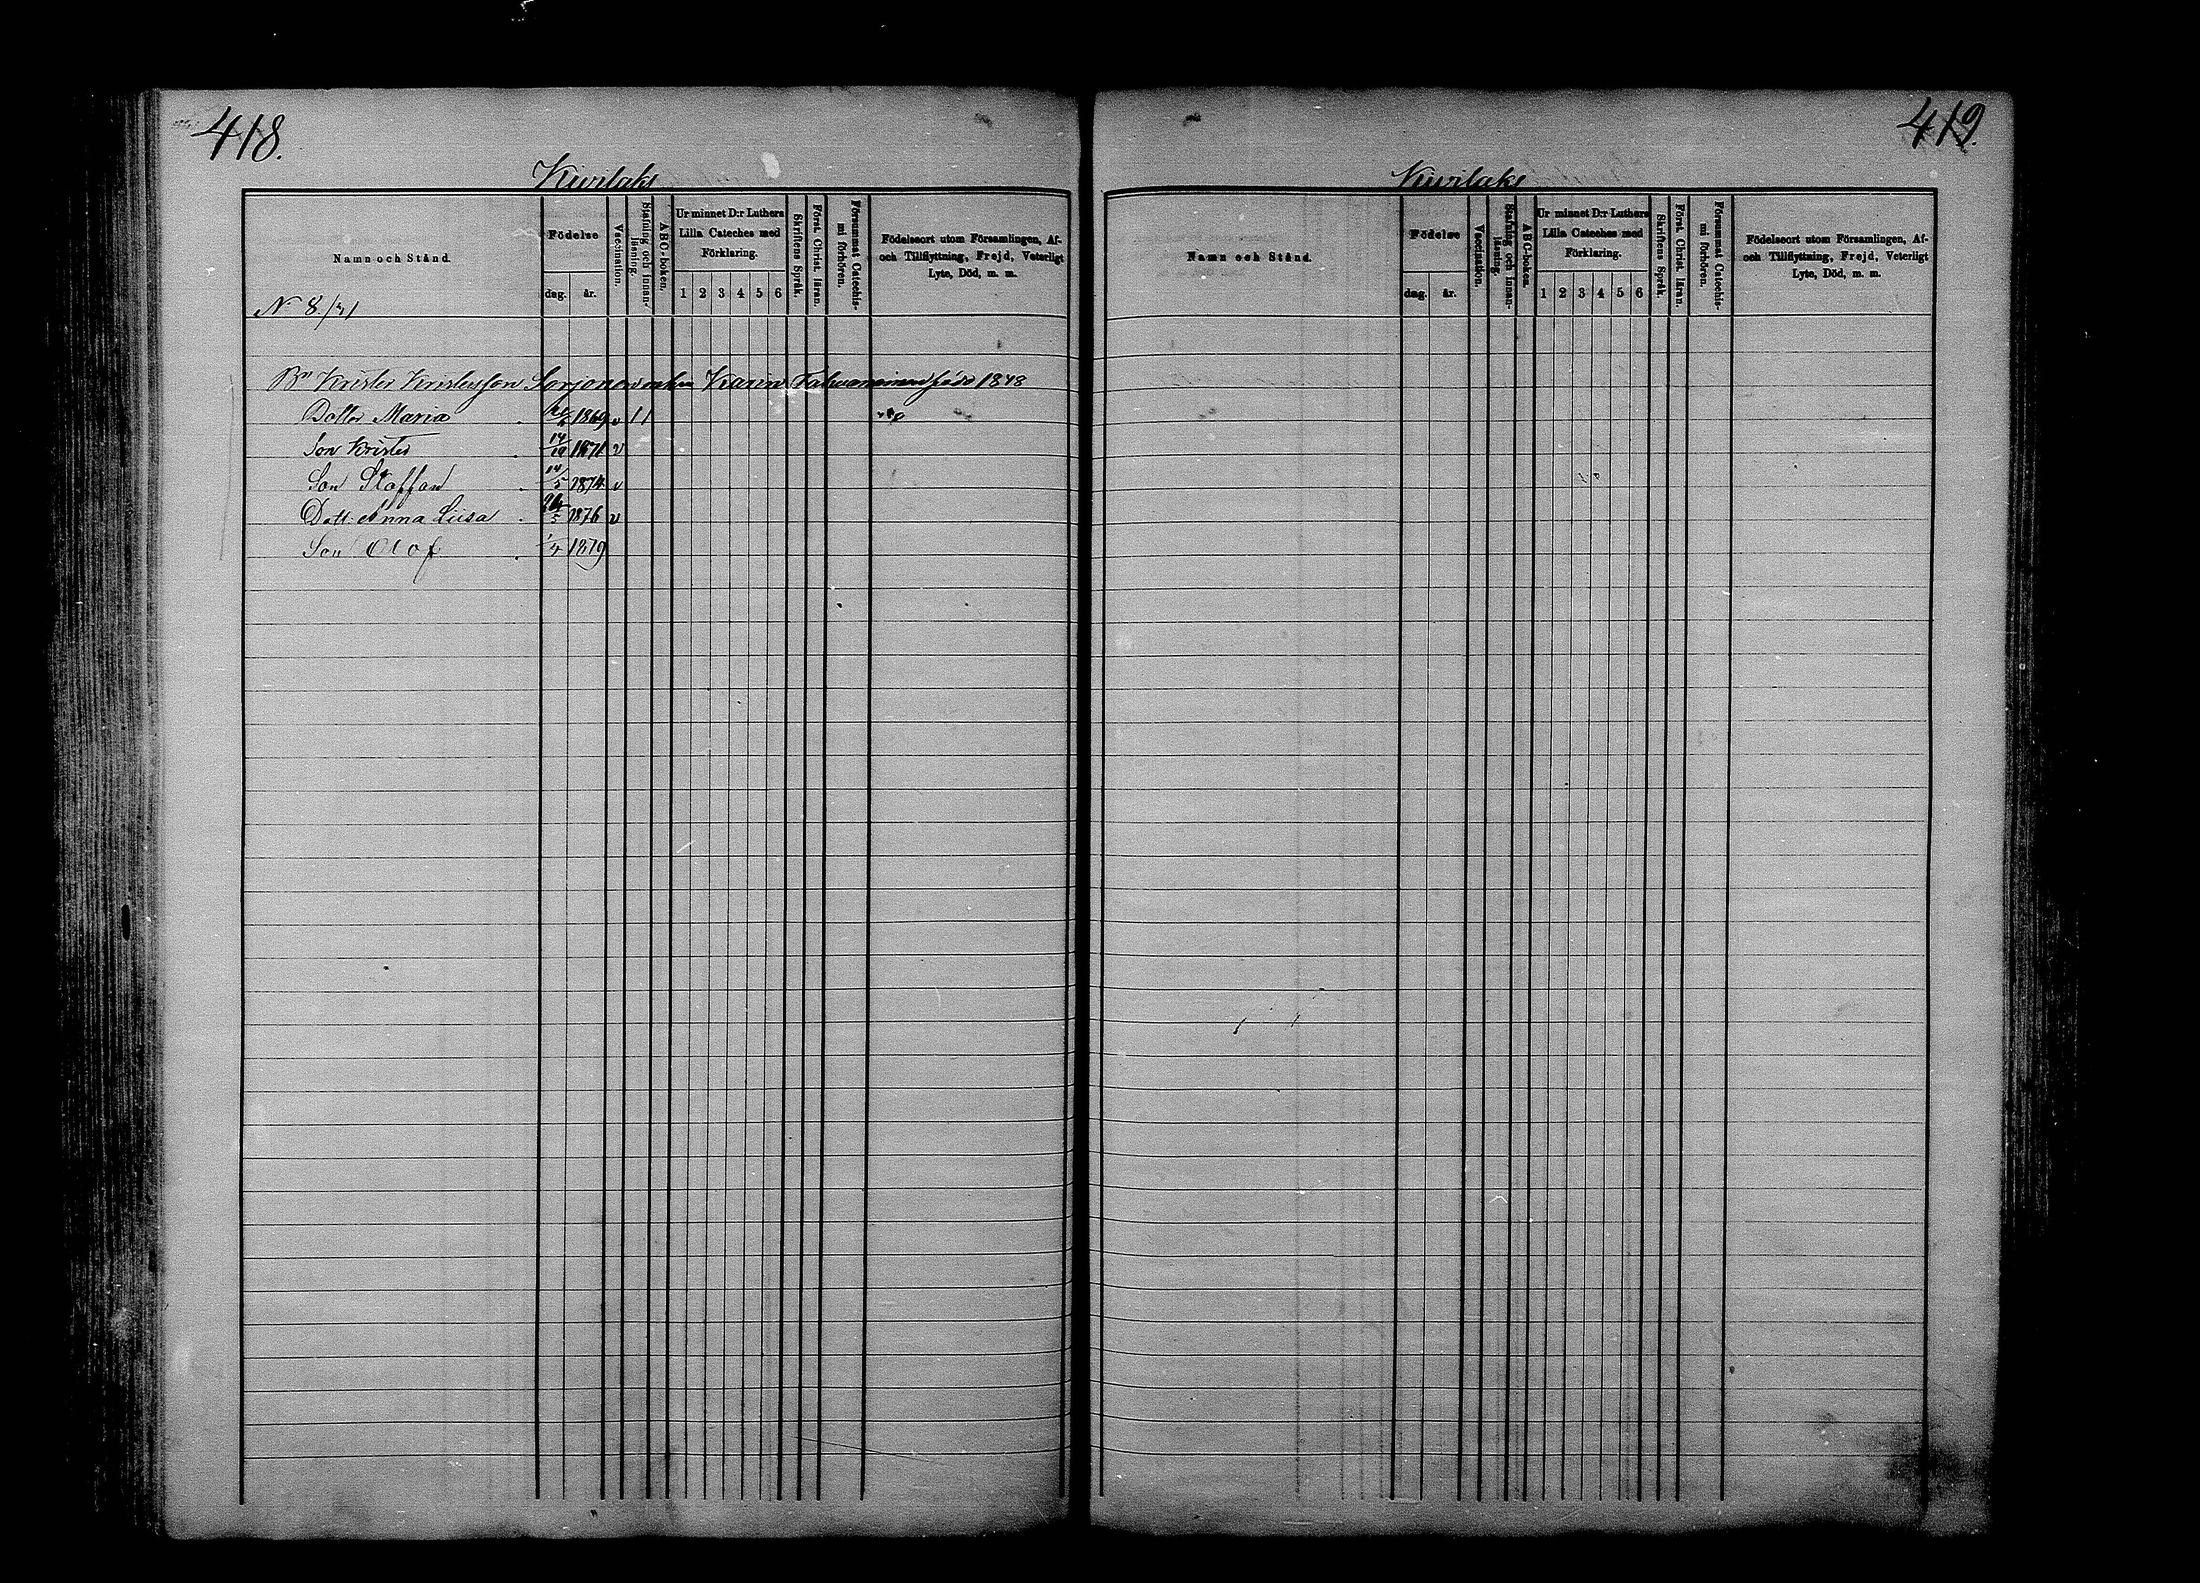 418.
Kurilaks
Namn och Stånd.
Födelse
dag. år.
Vaccination.
Stafning och innan-
läsning.
ABC-boken.
Ur minnet D:r Luthers
Lilla Cateches med
Förklaring.
1 2 3 4 5 6
Skriftens Språk.
Först. Christ. läran.
Försummat Catechis-
mi förhören.
Födelseort utom Församlingen, Af-
och Tillflyttning, Frejd, Veterligt
Lyte, Död, m. m.
N 8/31
Bn Krister Kristersson Sorjonen enkan Karin född 1848
Dotter Maria 1869 v 11
Son Krister 14/10 1871 v
Son Staffan 14/5 1874 v
Dott. Anna Liisa 1876 v
Son Olof 1879
419.
Kurilaks
Namn och Stånd.
Födelse
dag. år.
Vaccination.
Stafning och innan-
läsning.
ABC-boken.
Ur minnet D:r Luthers
Lilla Cateches med
Förklaring.
1 2 3 4 5 6
Skriftens Språk.
Först. Christ. läran.
Försummat Catechis-
mi förhören.
Födelseort utom Församlingen, Af-
och Tillflyttning, Frejd, Veterligt
Lyte, Död, m. m.